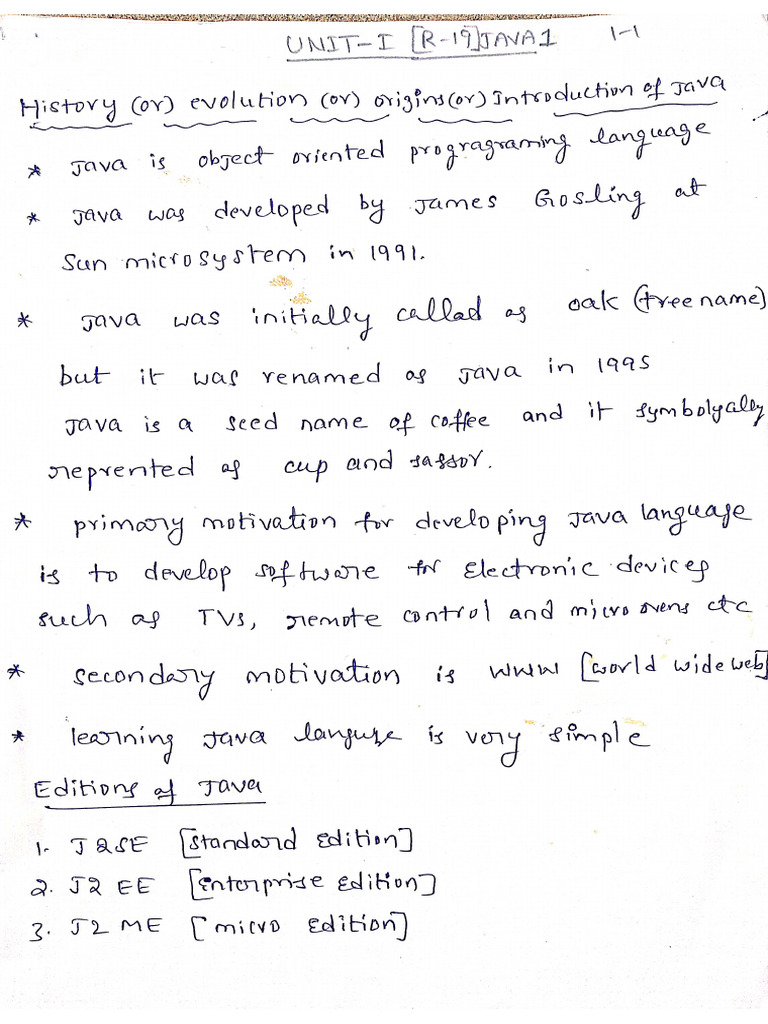 UNIT-I [R-19]JAVA1 1-1
History (or) evolution (or) origins(or) Introduction of Java
* Java is object oriented progragraming language
* Java was developed by James Gosling at
Sun microsystem in 1991.
* Java was initially called as oak (tree name)
but it was renamed as Java in 1995
Java is a seed name of coffee and it symbolyally
reprented as cup and sassor.
* primary motivation for developing Java language
is to develop software for Electronic devices
such as TVs, remote control and micro ovens etc
* secondary motivation is WWW [world wide web]
* learning Java languge is very simple
Editions of Java
1. J2SE [standard edition]
2. J2 EE [enterprise edition]
3. J2 ME [micro edition]